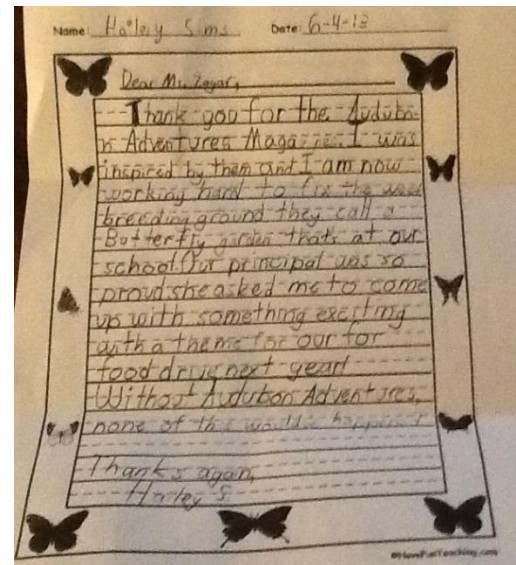 Name: Hailey Sims Date: 6-4-13
Dear Mr. Zagar,
Thank you for the Audubo-
n Adventures Magazines. I was
inspired by them and I am now
working hard to fix the weed
breeding ground they call a
Butterfly garden thats at our
school. Our principal was so
proud she asked me to come
up with something exciting
with a theme for our for
food drive next year!
Without Audubon Adventures,
none of this would
Thanks again,
Hailey S.
©HaveFunTeaching.com